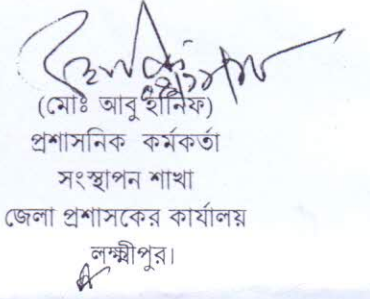 (মোঃ আবু হানিফ)
প্রশাসনিক কর্মকর্তা
সংস্থাপন শাখা
জেলা প্রশাসকের কার্যালয়
লক্ষ্মীপুর।